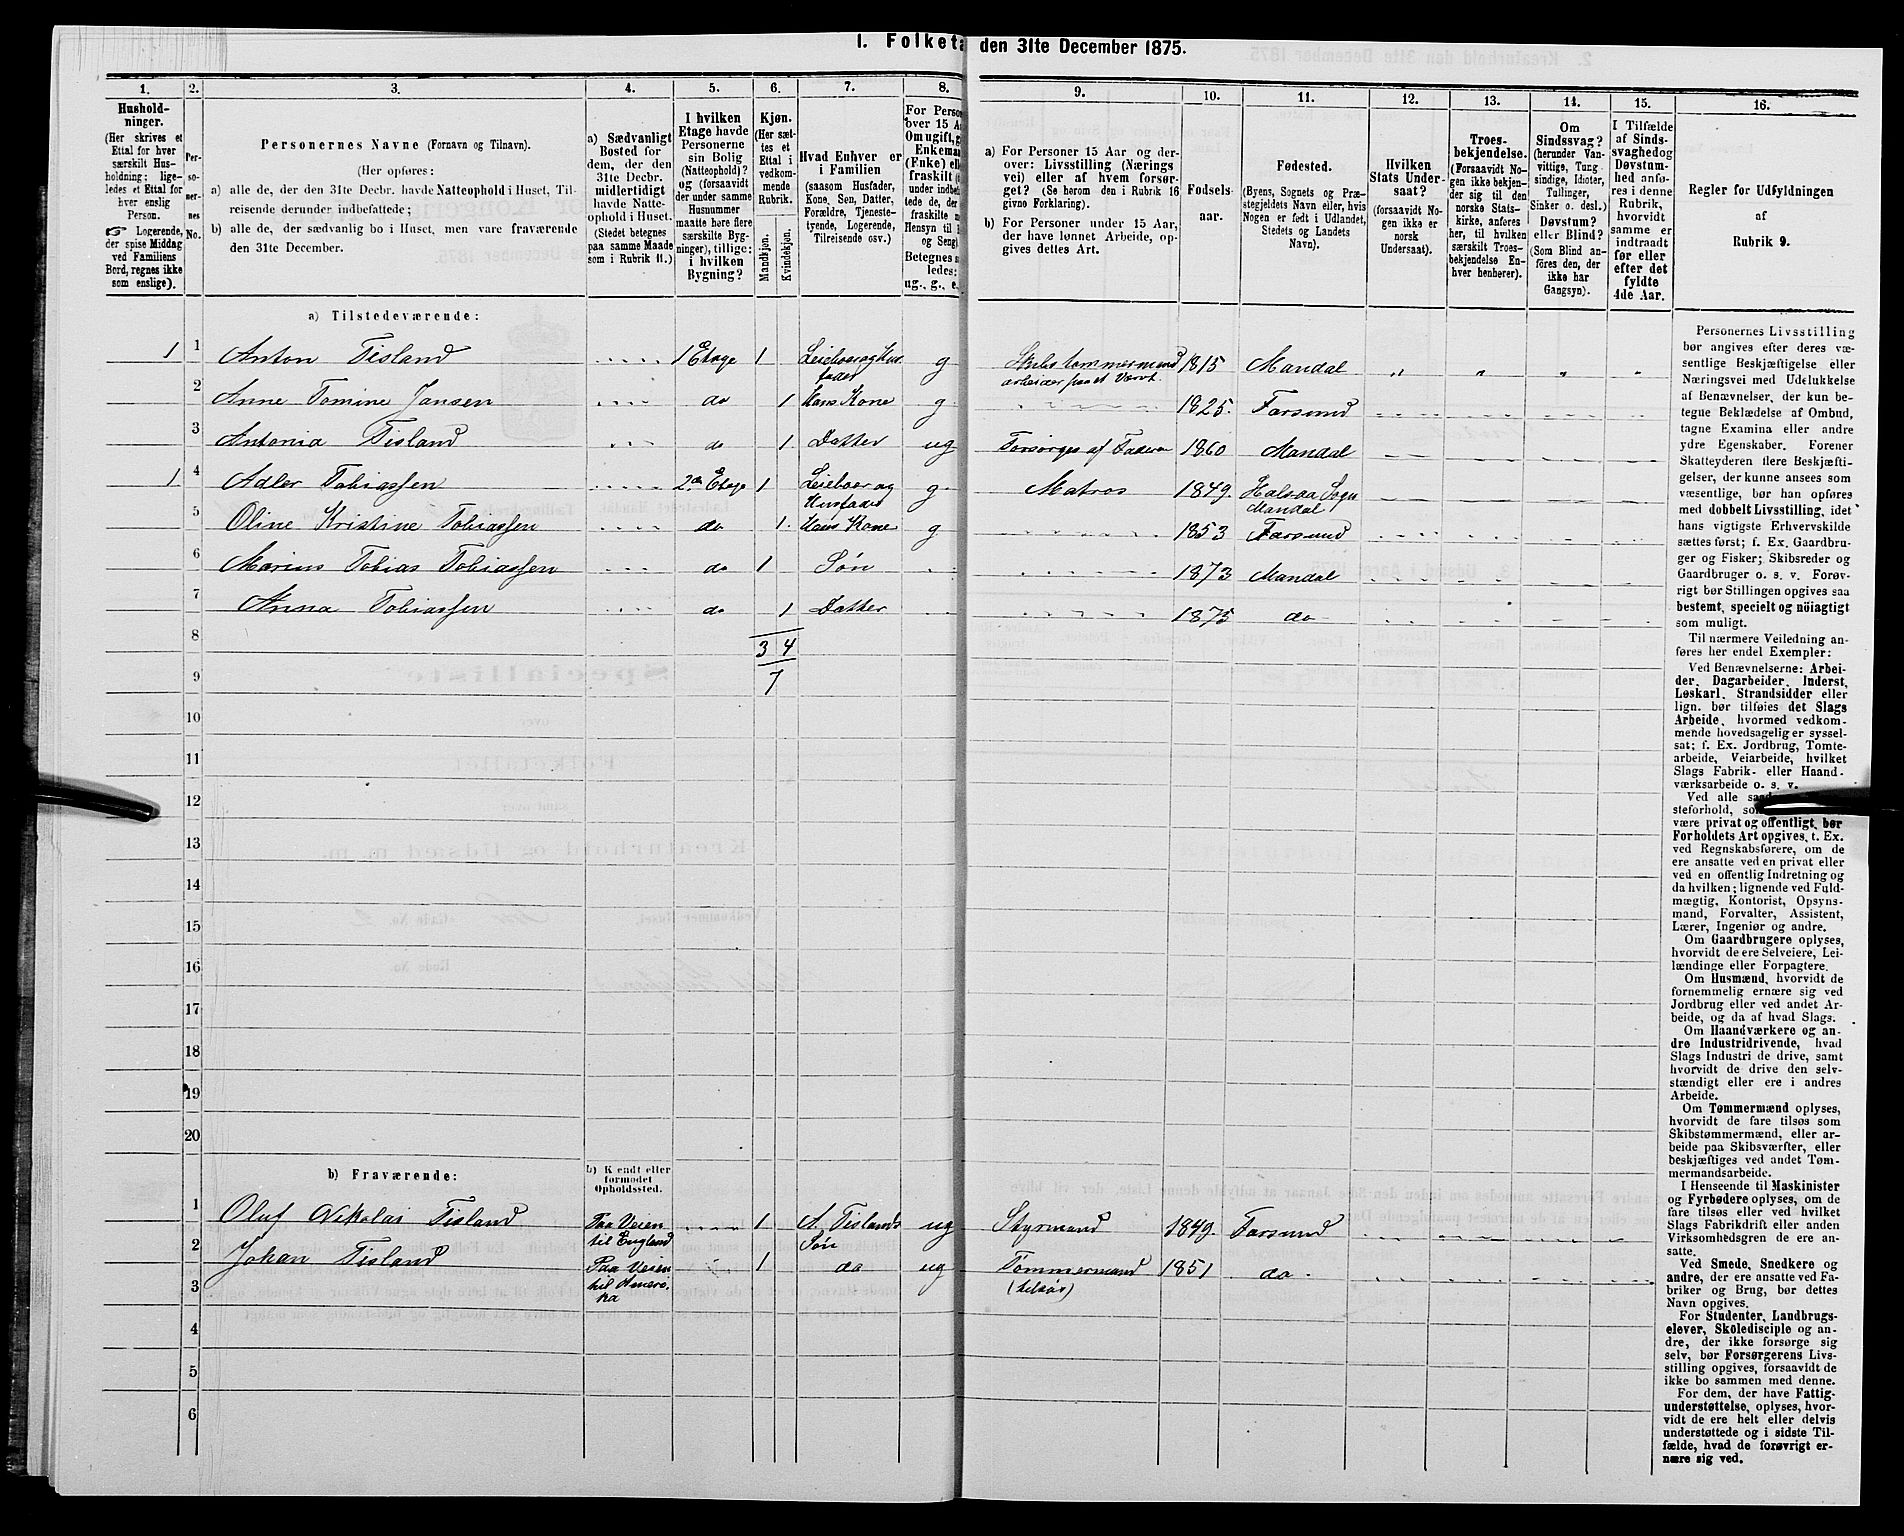 I. Folketa den 31te December 1875.
1. 2. 3. 4. 5. 6. 7. 8. 9. 10. 11. 12. 13. 14. 15. 16.
Hushold-
ninger.
(Her skrives et
Ettal for hver
særskilt Hus-
holdning; lige-
ledes et Ettal for
hver enslig
Person.
☞ Logerende,
der spise Middag
ved Familiens
Bord, regnes ikke
som enslige).
Per-
so-
ner-
nes
No.
Personernes Navne (Fornavn og Tilnavn).
(Her opføres:
a) alle de, der den 31te Decbr. havde Natteophold i Huset, Til-
reisende derunder indbefattede;
b) alle de, der sædvanlig bo i Huset, men vare fraværende
den 31te December.
a) Sædvanligt
Bosted for
dem, der den
31te Decbr.
midlertidigt
havde Natte-
ophold i Huset.
(Stedet betegnes
paa samme Maade
som i Rubrik 11.)
I hvilken
Etage havde
Personerne
sin Bolig
(Natteophold)?
og (forsaavidt
der under samme
Husnummer
maatte høre flere
særskilte Byg-
ninger), tillige:
i hvilken
Bygning?
Kjøn.
(Her sæt-
tes et
Ettal i
vedkom-
mende
Rubrik.
Mandkjøn.
Kvindekjøn.
Hvad Enhver er
i Familien
(saasom Husfader,
Kone, Søn, Datter,
Forældre, Tjeneste-
tyende, Logerende,
Tilreisende osv.)
For Perso
over 15 A
Om ugift, g
Enkema
(Enke) ell
fraskilt (
under indbe
tede de, der
fraskilte m
Hensyn til
og Seng)
Betegnes s
ledes:
ug., g., e.,
a) For Personer 15 Aar og der-
over: Livsstilling (Nærings
vei) eller af hvem forsør-
get? (Se herom den i Rubrik 16
givne Forklaring).
b) For Personer under 15 Aar,
der have lønnet Arbeide, op-
gives dettes Art.
Fødsels-
aar.
Fødested.
(Byens, Sognets og Præ-
stegjeldets Navn eller, hvis
Nogen er født i Udlandet,
Stedets og Landets
Navn).
Hvilken
Stats Under-
saat?
(forsaavidt No-
gen ikke er
norsk
Undersaat).
Troes-
bekjendelse.
(Forsaavidt No-
gen ikke bekjen-
der sig til den
norske Stats-
kirke, anføres
her, til hvilken
særskilt Troes-
bekjendelse En-
hver henhører).
Om
Sindssvag?
(herunder Van-
vittige, Tung-
sindige, Idioter,
Tullinger,
Sinker o. desl.)
Døvstum?
eller Blind?
(Som Blind an-
føres den, der
ikke har
Gangsyn).
I Tilfælde
af Sinds-
svaghed og
Døvstum-
hed anfø-
res i denne
Rubrik,
hvorvidt
samme er
indtraadt
før eller
efter det
fyldte
4de Aar.
Regler for Udfyldningen
af
Rubrik 9.
a) Tilstedeværende:
1 1 Anton Tisland 1 Etage 1 Leieboer og Hus- g Skibstømmermand 1815 Mandal
fader arbeider paa et Værvt
2 Anne Tomine Jansen do 1 Hans Kone g 1825. Farsund
3 Antonia Tisland do 1 Datter ug Forsørges af Faderen 1860 Mandal
1 4 Adler Tobiassen 2den Etage 1 Leieboer og g Matros 1849. Halsaa Sogn
Husfader Mandal
Oline Kristine Tobiassen do 1. Hans Kone g 1853 Farsund
6 Marius Tobias Tobiassen do 1 Søn 1873 Mandal
7 Anna Tobiassen do 1 Datter 1875 do
8 3 4
9 7
10
11
12
13
14
15
16
17
18
19
20
b) Fraværende:
b) Kendt eller
formodet
Opholdssted.
1 Oluf Nikolai Tisland Paa Veien 1 A. Tislands ug Styrmand 1849. Farsund
til England Søn
2 Johan Tisland Paa Veien 1 do ug Tømmermand 1851 do
3 til Ameri- (tilsøs)
ka
4
5
6
Personernes Livsstilling
bør angives efter deres væ-
sentlige Beskjæftigelse eller
Næringsvei med Udelukkelse
af Benævnelser, der kun be-
tegne Beklædelse af Ombud,
tagne Examina eller andre
ydre Egenskaber. Forener
Skatteyderen flere Beskjæfti-
gelser, der kunne ansees som
væsentlige, bør han opføres
med dobbelt Livsstilling, idet
hans vigtigste Erhvervskilde
sættes først; f. Ex. Gaardbru-
ger og Fisker; Skibsreder og
Gaardbruger o. s. v. Forøv-
rigt bør Stillingen opgives saa
bestemt, specielt og nöiagtigt
som muligt.
Til nærmere Veiledning an-
føres her endel Exempler:
Ved Benævnelserne: Arbei-
der, Dagarbeider, Inderst,
Løskarl, Strandsidder eller
lign. bør tilføies det Slags
Arbeide, hvormed vedkom-
mende hovedsagelig er syssel-
sat; f. Ex. Jordbrug, Tomte-
arbeide, Veiarbeide, hvilket
Slags Fabrik- eller Haand-
værksarbeide o. s. v.
Ved alle
steforhold, so
være privat og offentligt, bør
Forholdets Art opgives, t. Ex.
ved Regnskabsførere, om de
ere ansatte ved en privat eller
ved en offentlig Indretning og
da hvilken; lignende ved Fuld-
mægtig, Kontorist, Opsyns-
mand, Forvalter, Assistent,
Lærer, Ingeniør og andre.
Om Gaardbrugere oplyses,
hvorvidt de ere Selveiere, Lei-
lændinge eller Forpagtere.
Om Husmænd, hvorvidt de
fornemmelig ernære sig ved
Jordbrug eller ved andet Ar-
beide, og da af hvad Slags.
Om Haandværkere og an-
dre Industridrivende, hvad
Slags Industri de drive, samt
hvorvidt de drive den selv-
stændigt eller ere i andres
Arbeide.
Om Tømmermænd oplyses,
hvorvidt de fare tilsøs som
Skibstømmermænd, eller ar-
beide paa Skibsværfter, eller
beskjæftiges ved andet Tøm-
mermandsarbeide.
I Henseende til Maskinister
og Fyrbødere oplyses, om de
fare tilsøs eller ved hvilket
Slags Fabrikdrift eller anden
Virksomhedsgren de ere an-
satte.
Ved Smede, Snedkere og
andre, der ere ansatte ved Fa-
briker og Brug, bør dettes
Navn opgives.
For Studenter, Landbrugs-
elever, Skoledisciple og an-
dre, der ikke forsørge sig
selv, bør Forsørgerens Livs-
stilling opgives, forsaavidt de
ikke bo sammen med denne.
For dem, der have Fattig-
understøttelse, oplyses, hvor-
vidt de ere helt eller delvis
understøttede og i sidste Til-
fælde, hvad de forøvrigt er-
nære sig ved.